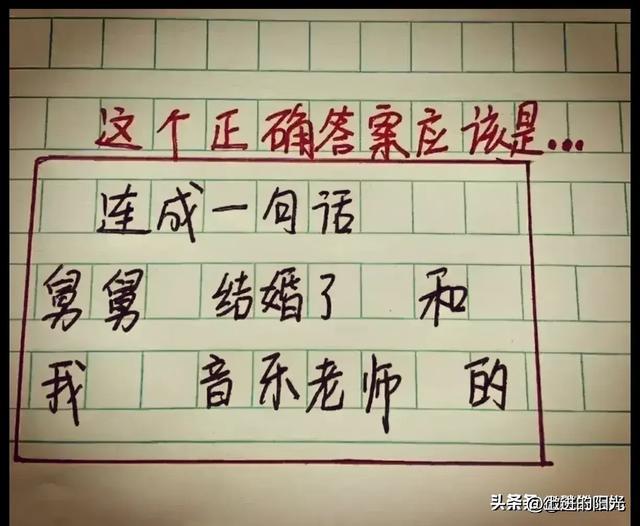 这个正确答案应该是...
连成一句话
舅舅 结婚了 和
我 音乐老师 的
头条 @上进的阳光